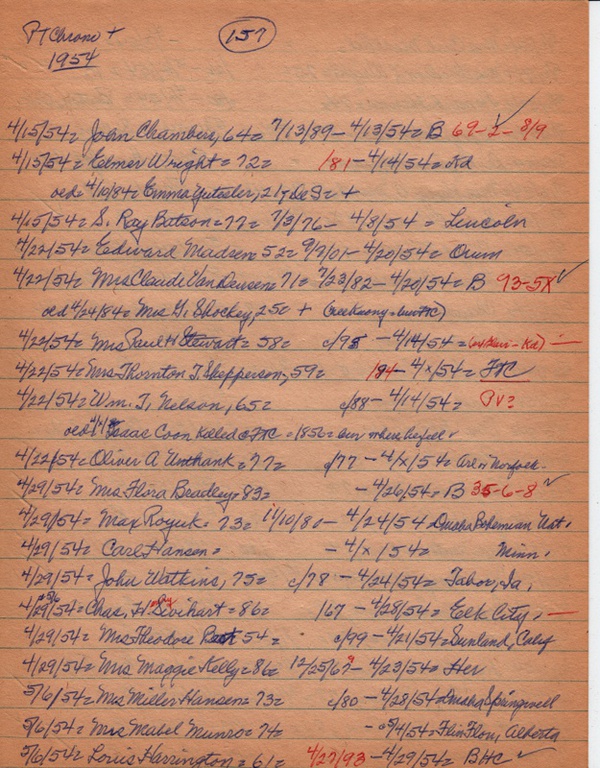 PT Chrono +
157
1954
4/15/54= John Chambers, 64= 7/13/89 - 4/13/54= B 69-2-8/9
4/15/54= Elmer Wright= 72= 181 - 4/14/54= Kd
oed= 4/10/84= Emma Yutseler, 21 +
4/15/54= S. Ray Batson= 77= 7/3/76 - 4/8/54 = Lincoln
4/22/54= Edward Madsen 52= 9/7/01 - 4/20/54= Orum
4/22/54= Mrs Claude Van Deusen 71= 7/23/82 - 4/20/54= B 93-5X
oed 4/24/84= Mrs G. Shockey, 25= + (
4/22/54= Mrs Paul H Stewart= 58= c/95 - 4/14/54= - Kd)
4/22/54= Mrs Thornton T. Shepperson, 59= 194 - 4/x/54= FTC
4/22/54= Wm. T. Nelson, 65= c/88 - 4/14/54= PV?
oed Isaac Coon Killed @ FTC = 1856=
4/22/54= Oliver A Unthank= 77= c/77 - 4/x/54= Norfolk.
4/29/54= Mrs Flora Beadley= 83= - 4/26/54= B 35-6-8
4/29/54= Max Royuk= 73= 11/10/80 - 4/24/54= Omaha Bohemian Nat.
4/29/54= Carl Hansen= - 4/x/54= Minn.
4/29/54= John Watkins, 75= c/78 - 4/24/54= Tabor, Ia.
4/29/54= Chas. H. Sevihart= 86= 167 - 4/28/54= Elk City.
4/29/54= Mrs Theodore 54= c/99 - 4/21/54= Sunland, Calif
4/29/54= Mrs Maggie Kelly= 86= 12/25/67 - 4/23/54= Her
5/6/54= Mrs Miller Hansen= 73= c/80 - 4/28/54= Omaha Springwell
5/6/54= Mrs Mabel Munro= 74= - 5/4/54= Flin Flon, Alberta
5/6/54= Louis Harrington= 61= 4/27/93 - 4/29/54= BHC